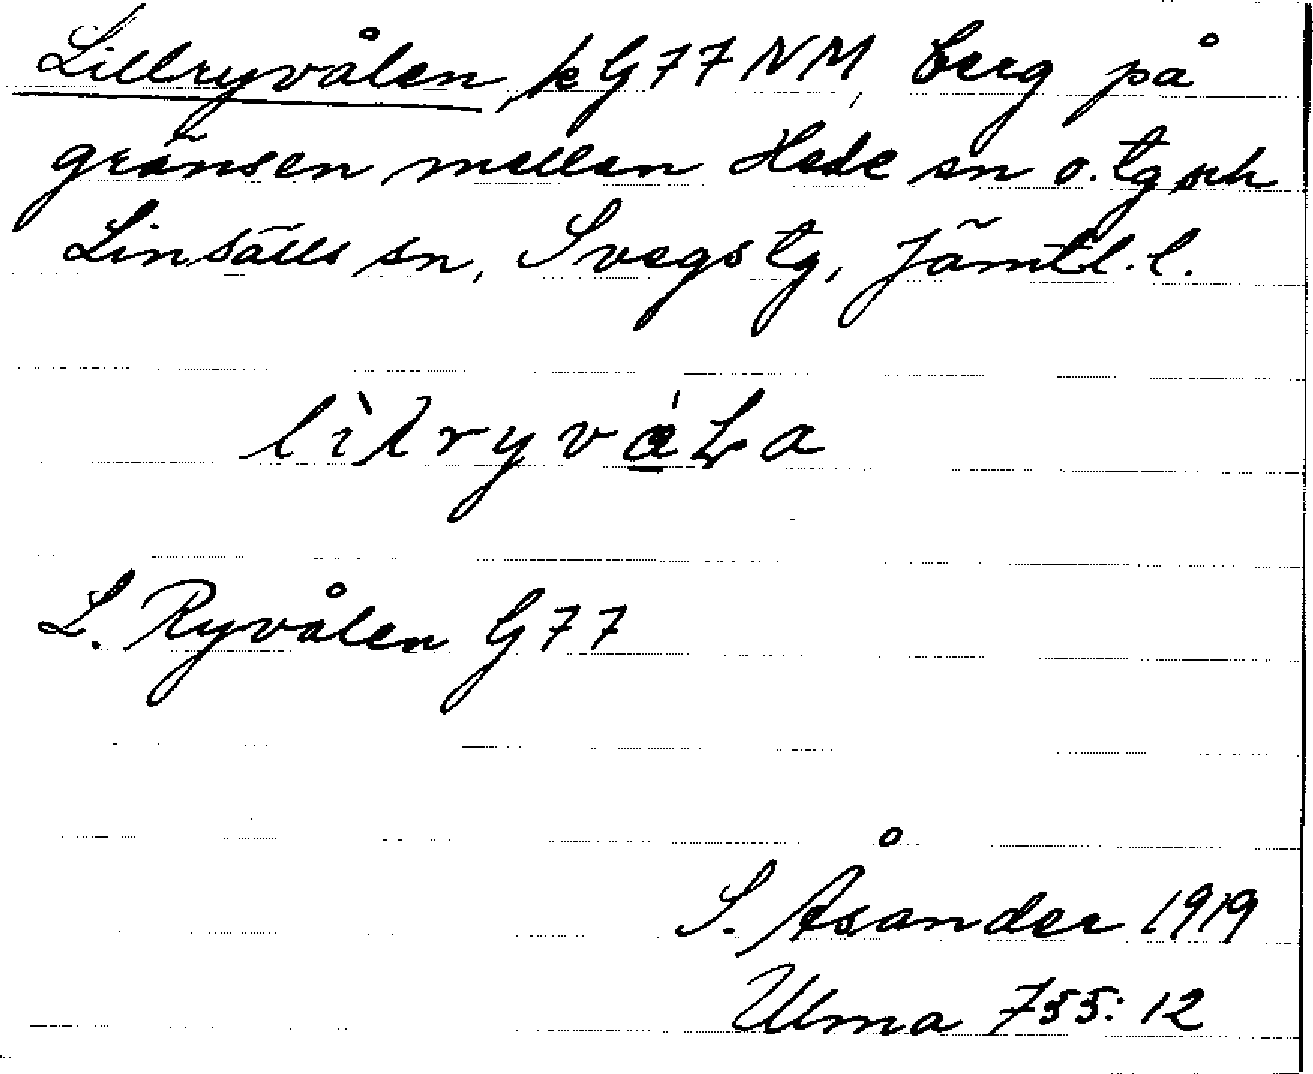 Lillryvålen, k G77 NM, berg på
gränsen mellan Hede sn o. tg och
Linsälls sn, Svegs tg, Jämtl. l.
L. Ryvålen G77
S. Åsander 1919
Ulma 755: 12